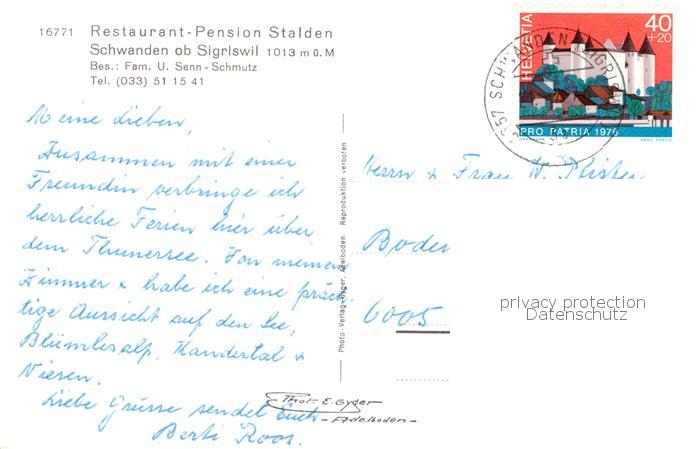 16771 Restaurant-Pension Stalden
Schwanden ob Sigriswil 1013 m ü. M
Bes.: Fam. U. Senn-Schmutz
Tel. (033) 51 15 41
Meine Lieben,
Zusammen mit einer
Freundin verbringe ich
herrliche Ferien hier über
dem Thunersee. Von meinem
Zimmer + habe ich eine präch-
tige Aussicht auf den See,
Blümlisalp, Kandertal +
Niesen.
Liebe Grüsse sendet Euch
Berti Roos.
Photo-Verlag Gyger, Adelboden Reproduktion verboten
Phot. E. Gyger
- Adelboden -
HELVETIA
40
+20
PRO PATRIA 1976
3657 SCHWANDEN SIGRISWIL
Herrn + Frau W.
Boden
6005
privacy protection
Datenschutz